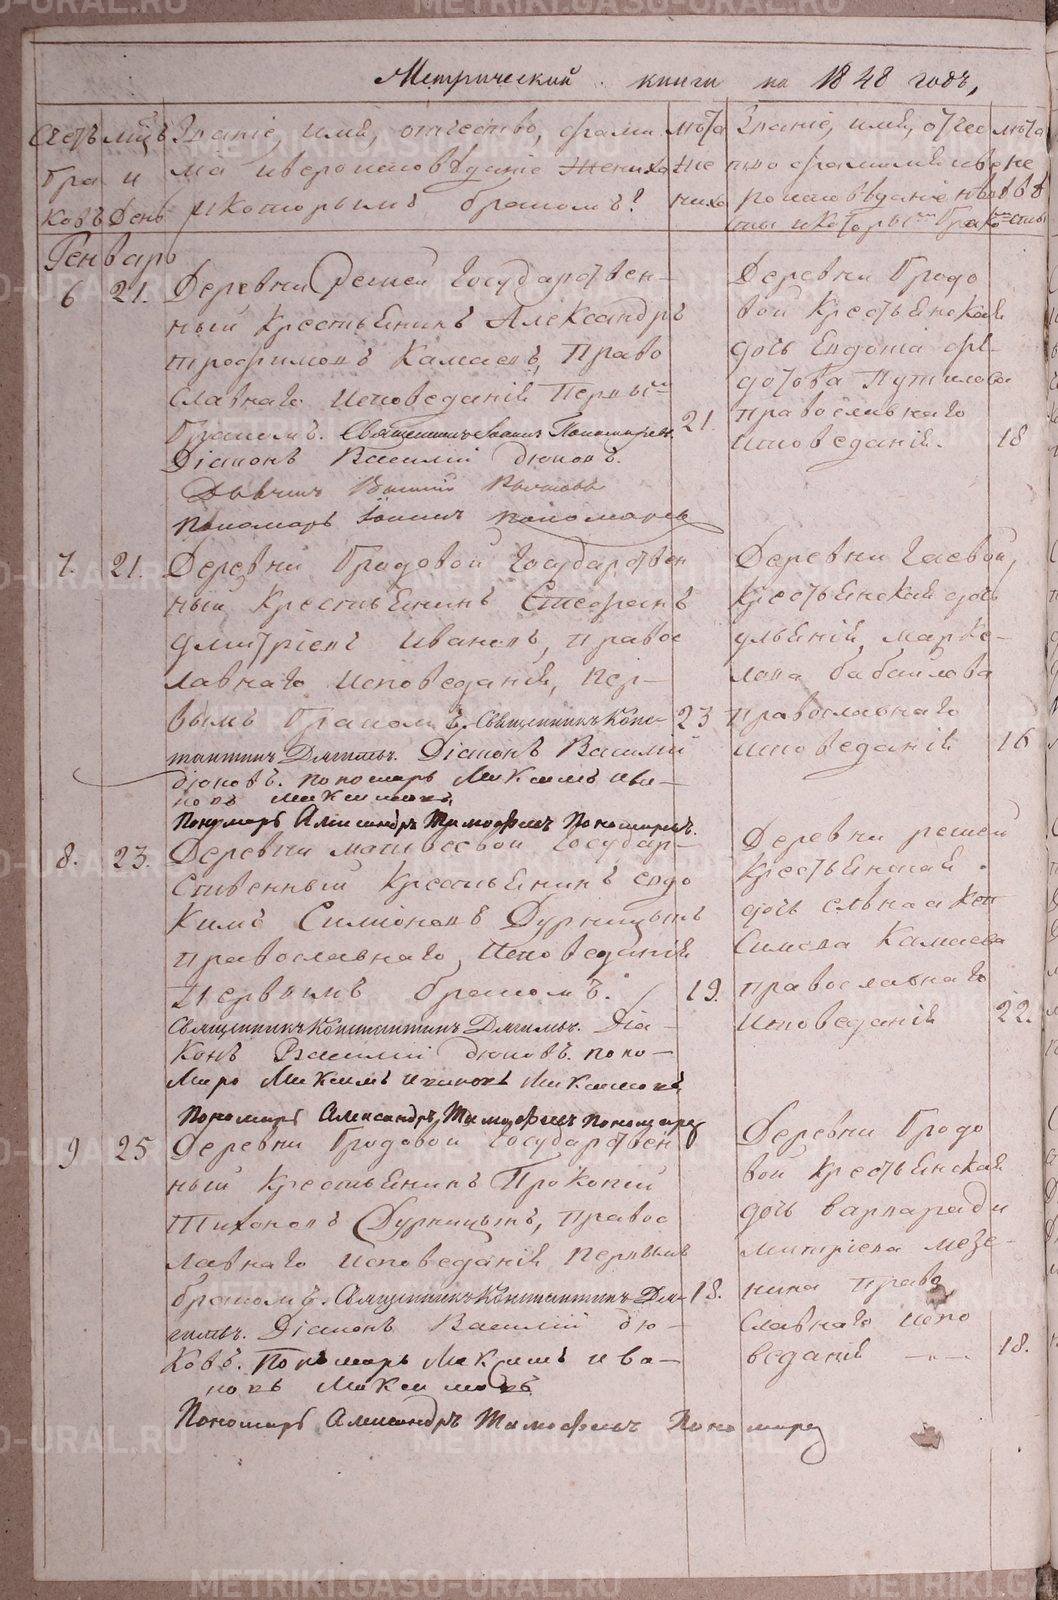 Метрической книги на 1848 годъ,
Счетъ Мцъ Званіе, имя, отчество, фами лѣта Званіе, имя, отчес лѣта
бра и лія и вероисповѣданіе жениха же тво фамилія и ве не
ковъ День и которымъ бракомъ? ниха роисповѣданіе невѣ вѣ
сты и которымъ бракомъ сты
Генварь
6 21. Деревни Решеи Государствен-
ный Крестьянинъ Александръ
Трофимовъ Камаевъ, Право
славнаго исповеданій Первы
бракомъ. Священникъ Іоаннъ Пономаревъ 21.
Діаконъ Василий Дюковъ.
Дьячикъ
Пономарь Іоаннъ Пономаревъ
Деревни Бродо
вой Крестьянская
дочь Евдокія Фе-
дотова Путилова
православнаго
исповеданій. 18
7. 21. Деревни Бродовой Государствен
ный Крестьянинъ Стефанъ
Дмитріевъ Ивановъ, правос
лавнаго исповеданій, Пер-
вымъ бракомъ. Священникъ Конс- 23
тантинъ Дягилевъ. Діаконъ Василий
Дюковъ. Пономарь Максимъ Ива-
новъ Максимовъ
Пономарь Александръ Тимофеевъ Пономаревъ.
Деревни Гаевой,
Крестьянская дочь
Ульянія Марке-
лова Бабайлова
православнаго
исповеданій 16
8. 23. Деревни Матвеевой Государ-
ственный Крестьянинъ Евдо
кимъ Симіоновъ Дурницынъ
православнаго Исповеданій
Первымъ бракомъ. 19.
Священникъ Константинъ Дягилевъ. Діа-
конъ Василий Дюковъ. Поно-
марь Максимъ Ивановъ Максимовъ
Пономарь Александръ Тимофеевъ Пономарев
Деревни Решеи
Крестьянская
дочь
Симова Камаева
православнаго
Исповеданій 22.
9 25 Деревни Бродовой Государствен
ный Крестьянинъ Прокопий
Тихоновъ Дурницынъ, Правос
лавнаго исповеданій Первымъ
бракомъ. Священникъ Константинъ Дя- 18.
гилевъ. Діаконъ Василий Дю-
ковъ. Пономарь Максимъ Ива-
новъ Максимовъ
Пономарь Александръ Тимофеевъ Пономарев
Деревни Бродо
вой Крестьянская
дочь Варвара Ди
митріева Мезе-
нина Право
славнаго испо
веданій 18.
METRIKI.GASO-URAL.RU